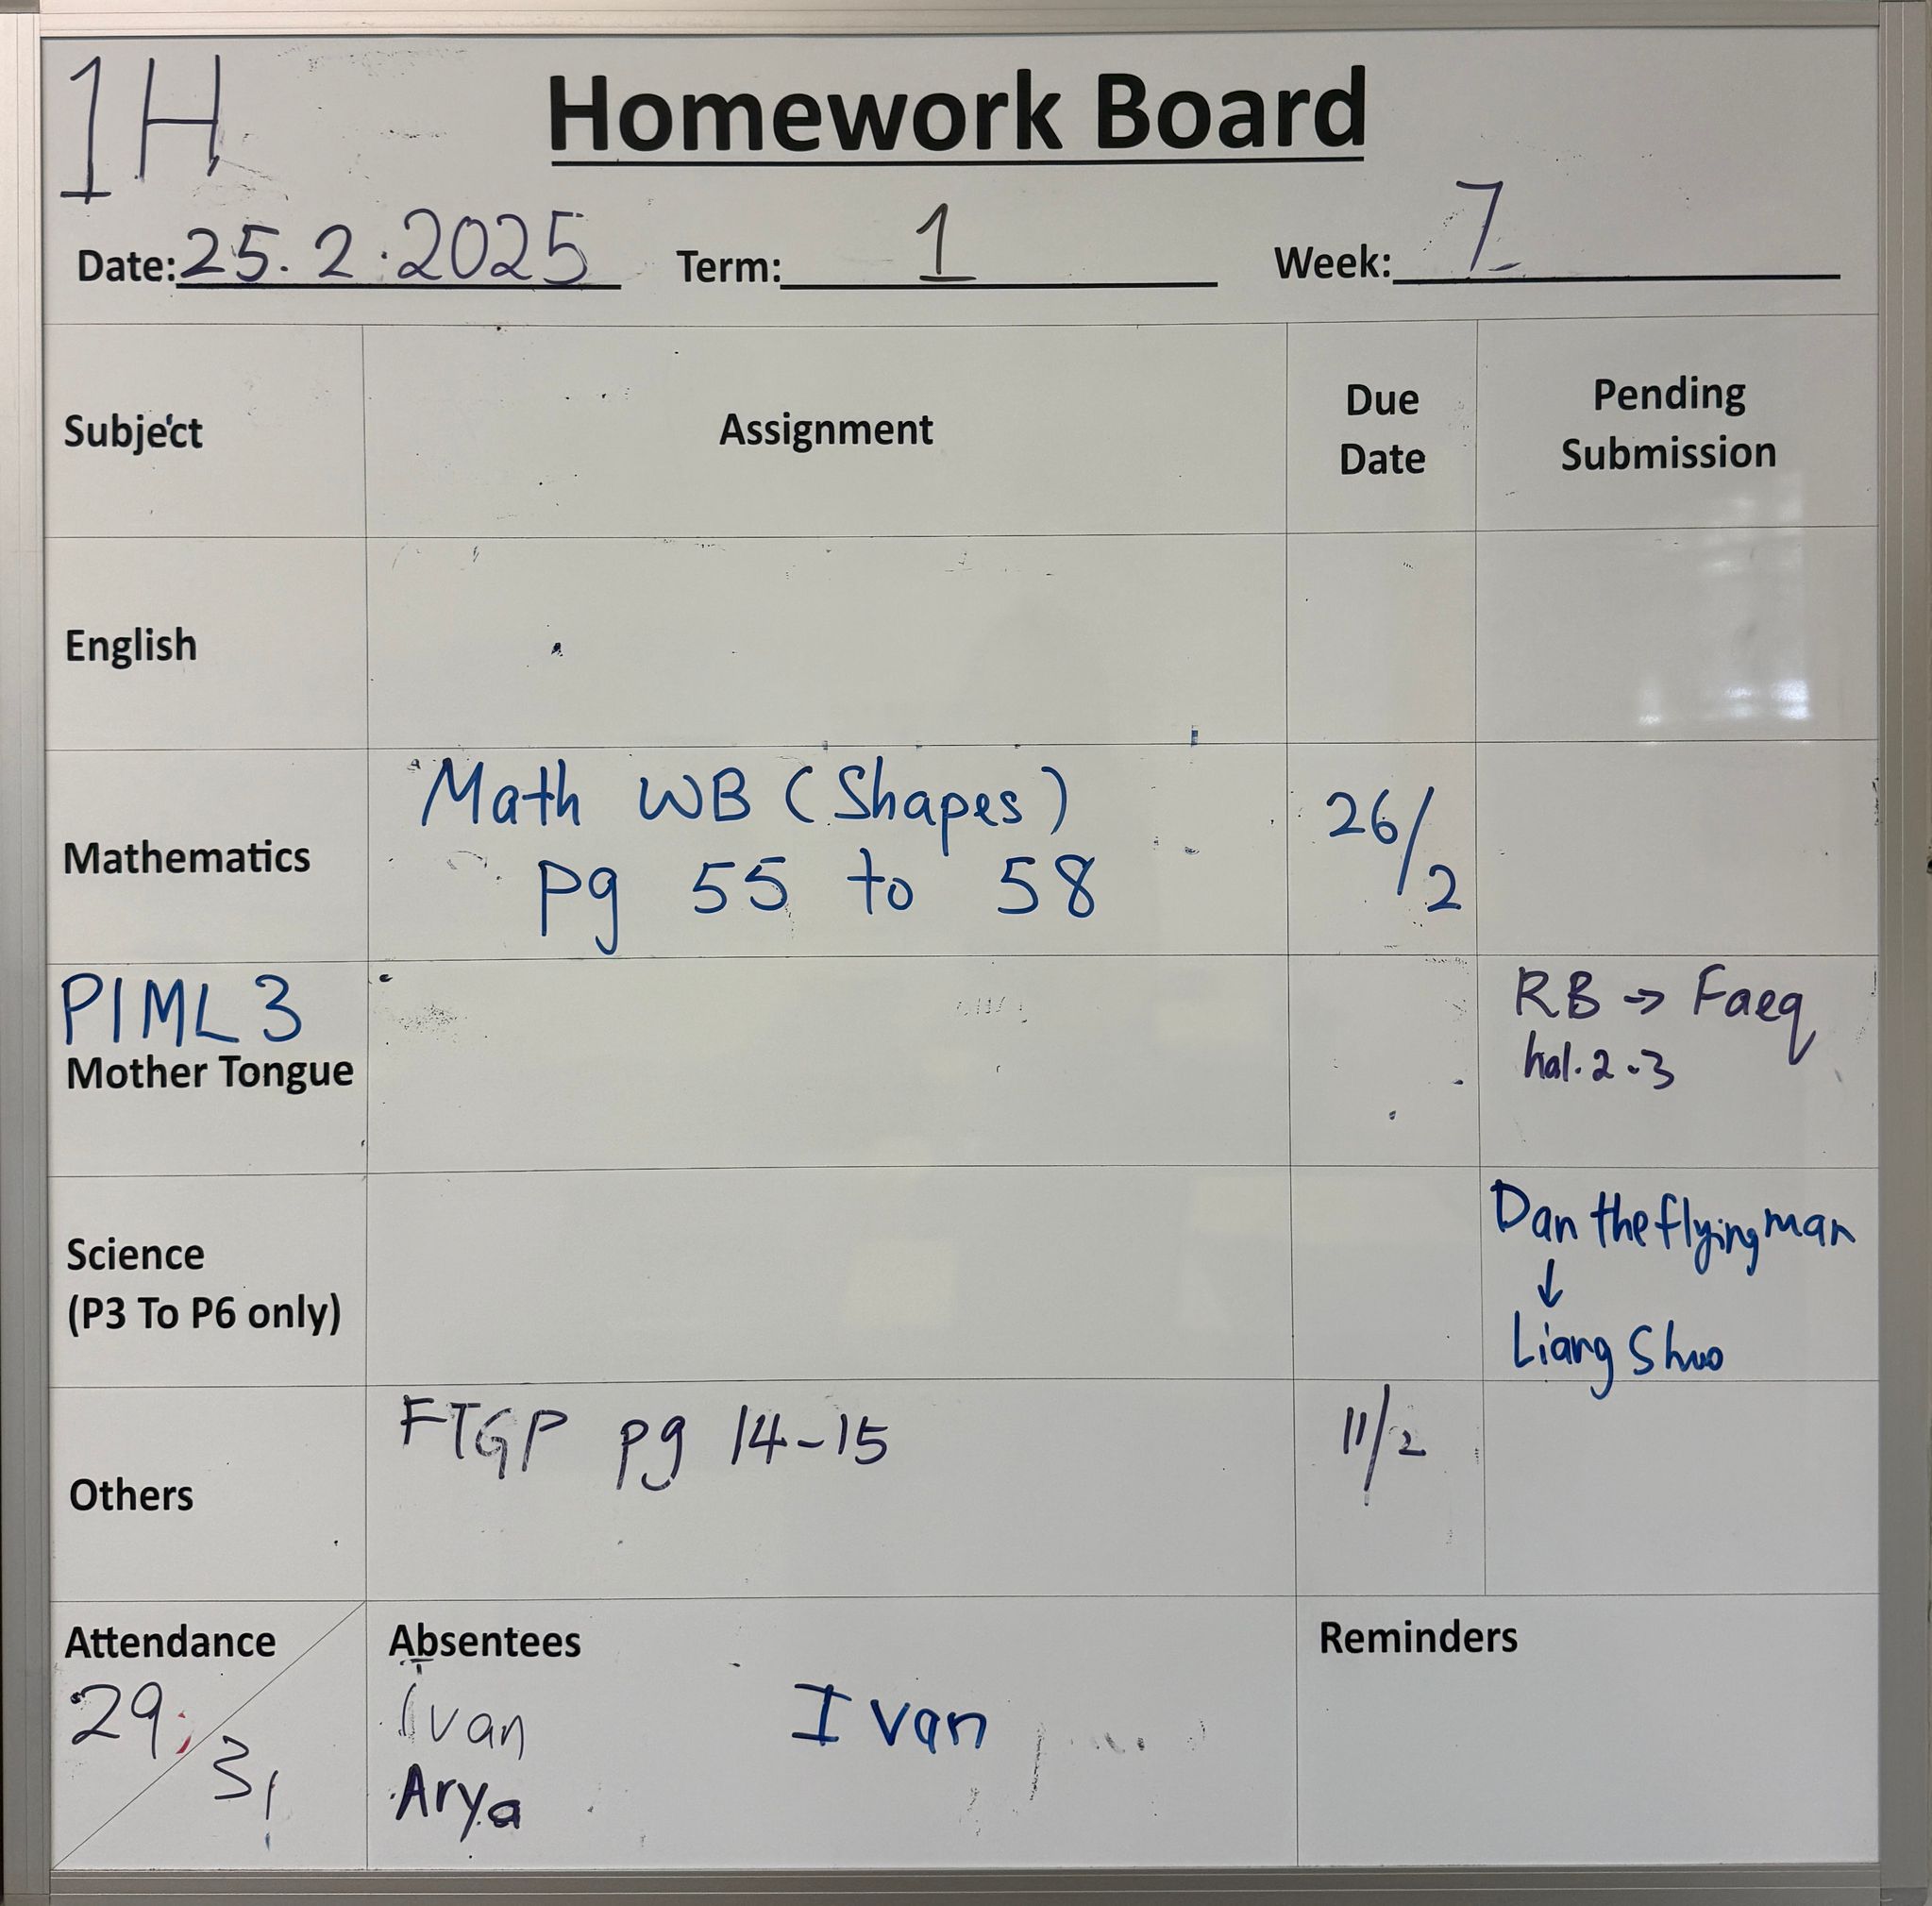 1H
Homework Board
Date: 25.2.2025 Term: 1 Week: 7
Subject Assignment Due Date Pending Submission
English
Mathematics
Math WB (Shapes)
pg 55 to 58
26/2
PIML 3
Mother Tongue
RB → Faeq
hal. 2-3
Science
(P3 To P6 only)
Dan the flying man
↓
Liang Shuo
Others
FTGP pg 14-15
11/2
Attendance
29
31
Absentees
Ivan Ivan
Arya
Reminders